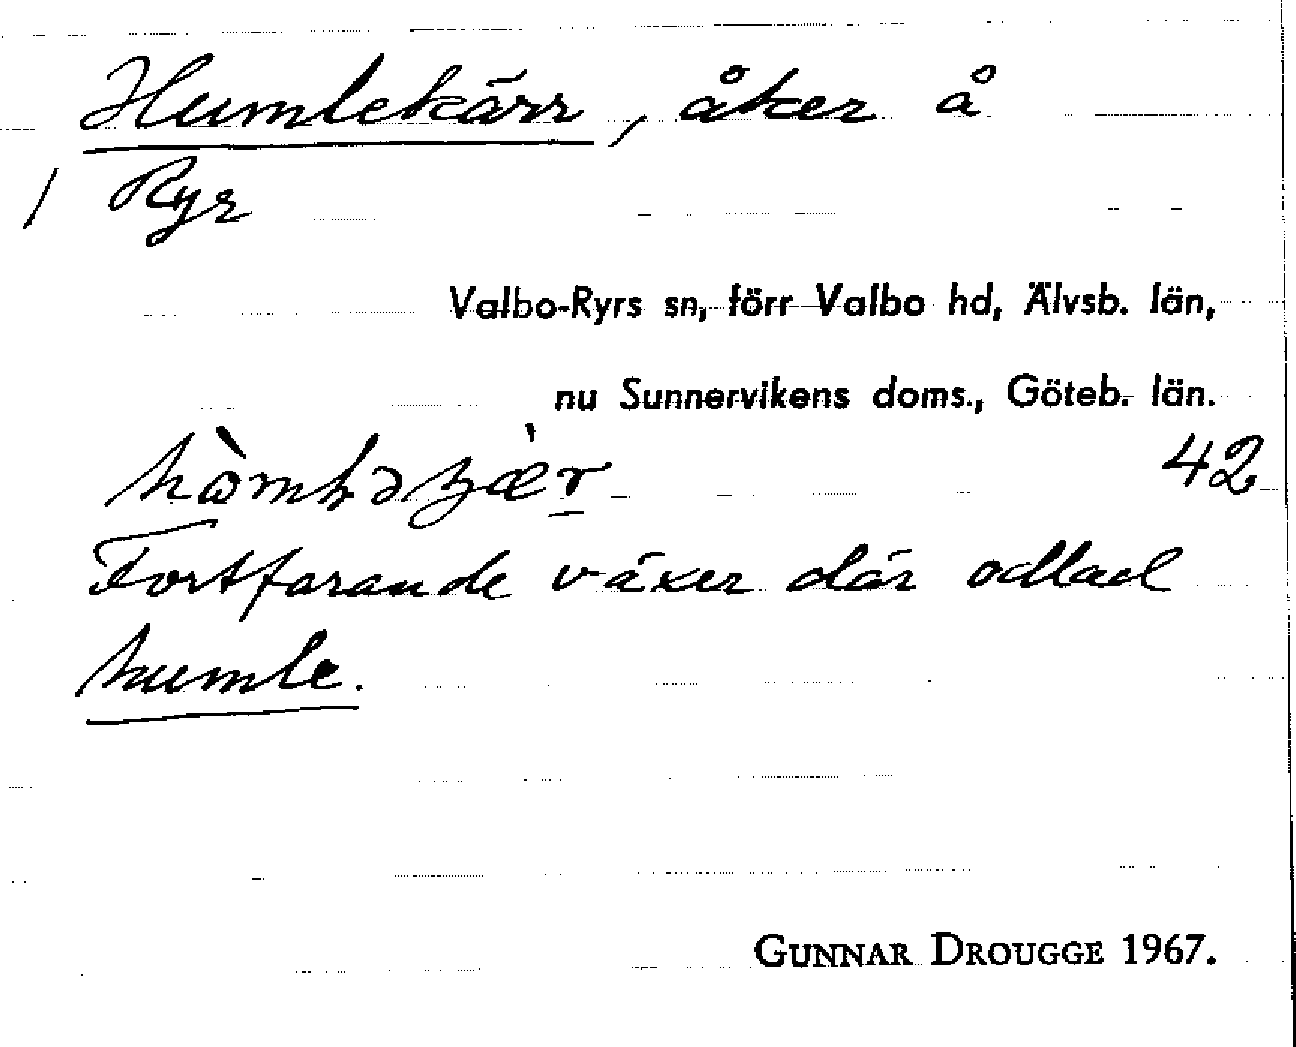 Humlekärr, åker å
/ Ryr
Valbo-Ryrs sn, förr Valbo hd, Älvsb. län,
nu Sunnervikens doms., Göteb. län.
42
Fortfarande växer där odlad
humle.
GUNNAR DROUGGE 1967.